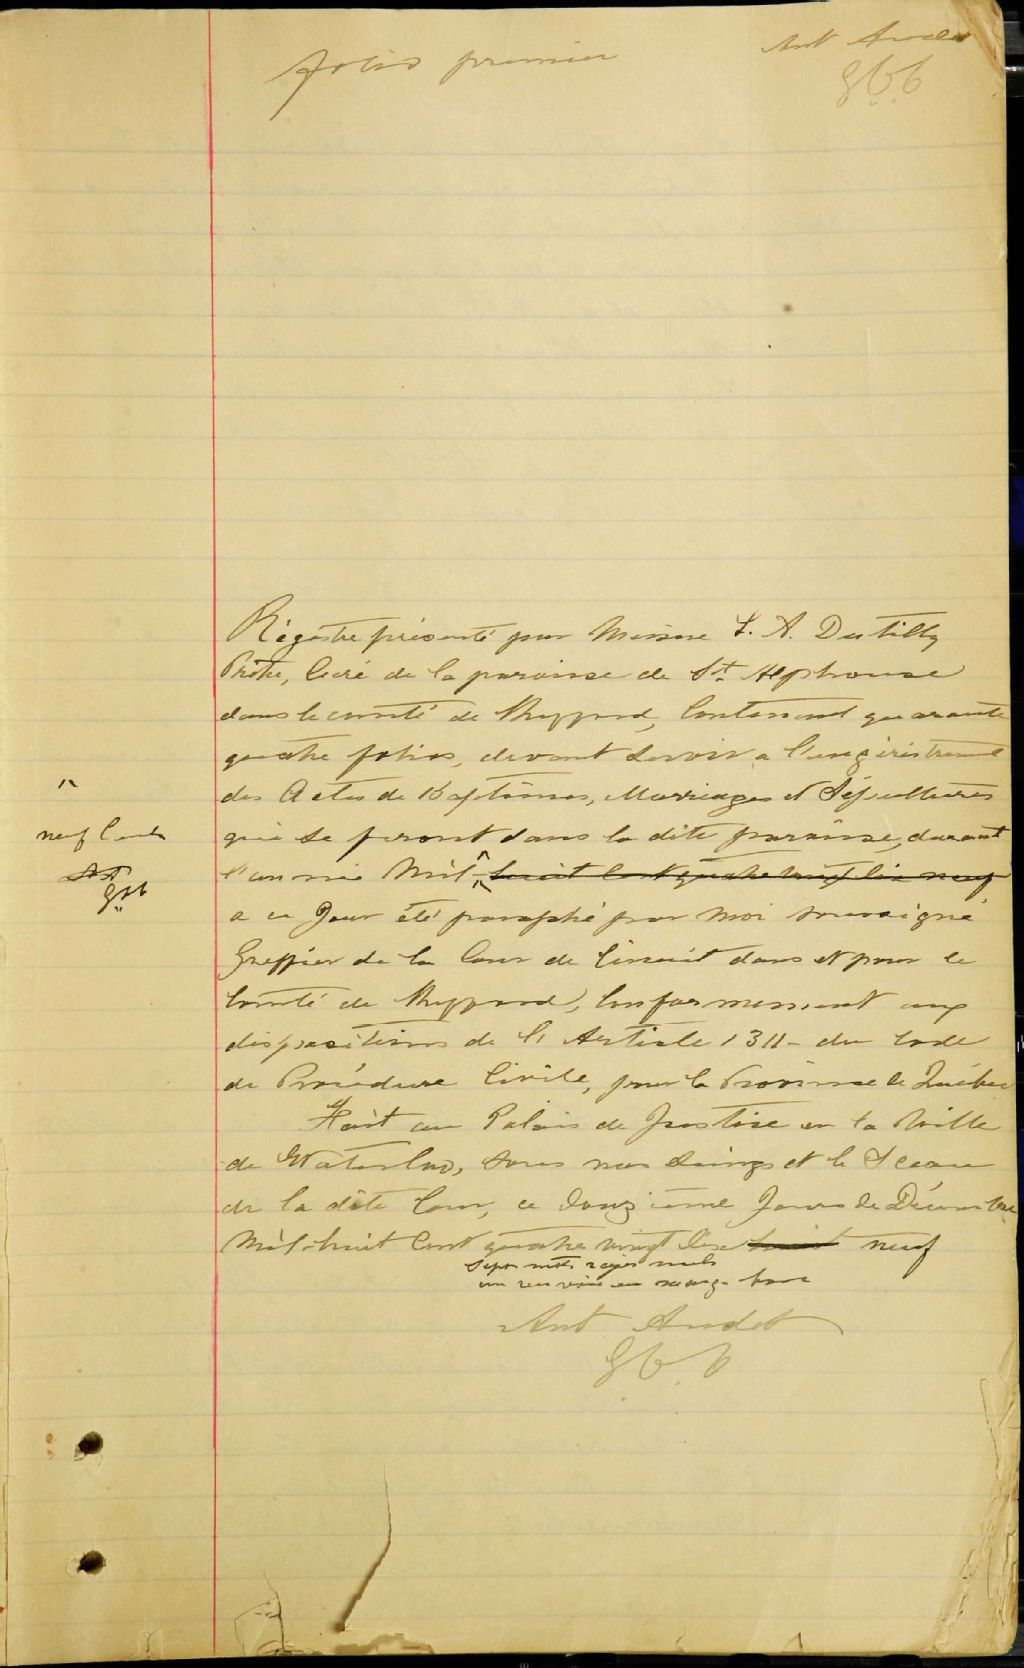 folio premier
Ant Audet
G.C.C
Régistre présenté par Messire L. A. Dutilly
Prêtre, Curé de la paroisse de St Alphonse
dans le comté de Shefford, Contenant quarante
quatre folios, devant servir a l'enregistrement
des Actes de Baptêmes, Mariages et Sépultures
qui se feront dans la dite paroisse, durant
l'année Mil huit cent quatre vingt dix neuf
neuf Cents
a ce Jour été paraphé par moi soussigné
Greffier de la Cour de Circuit dans et pour le
Comté de Shefford, Conformément aux
dispositions de l'Article 1311 - du Code
de Procédure Civile, pour la Province de Québec
Fait au Palais de Justice en la Ville
de Waterloo, sous nos Seings et le Sceau
de la dite Cour, ce Douzieme Jour de Décembre
Mil-huit Cent quatre vingt Dix huit neuf
Sept mots rayés nuls
un renvoi en marge bon
Ant Audet
G.C.C